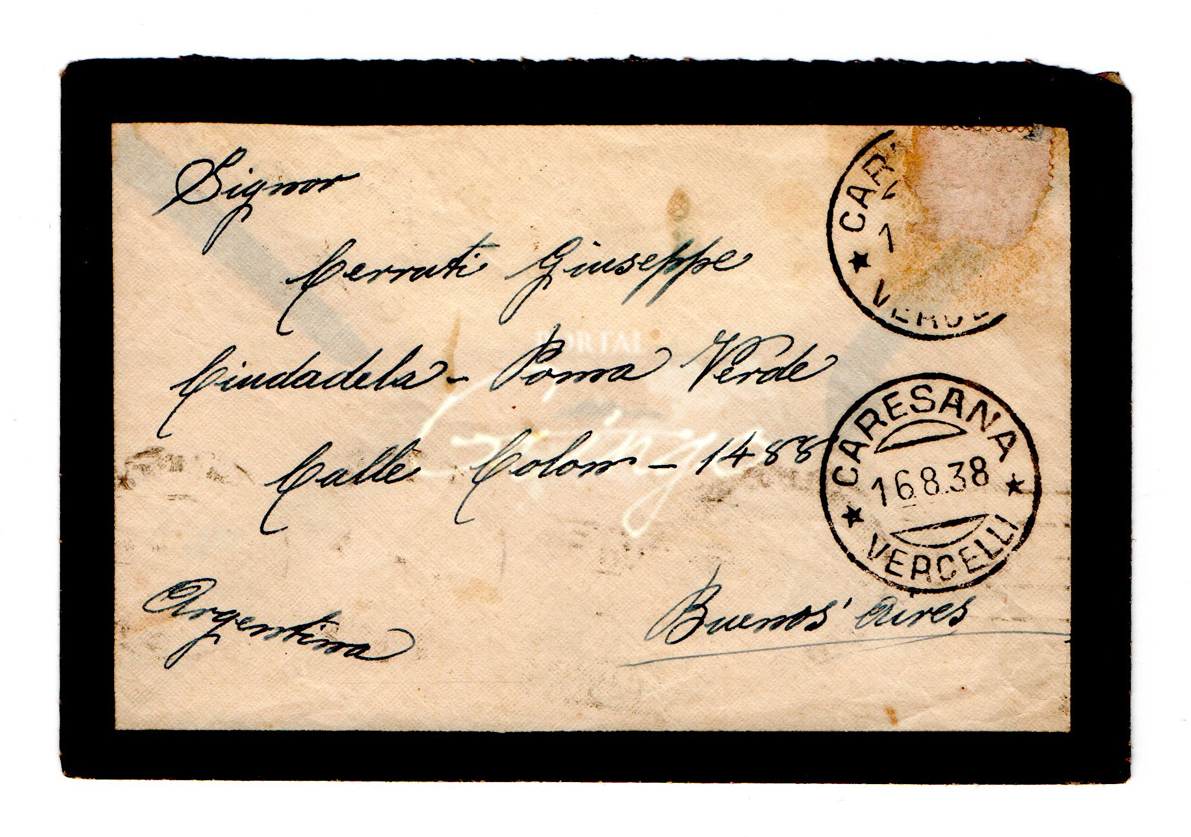 Signor
Cerruti Giuseppe
Ciudadela - Poma Verde
Calle Colom - 1488
Argentina
Buenos Aires
CAR
VERCE
CARESANA
16.8.38
VERCELLI
PORTAL
Gringo